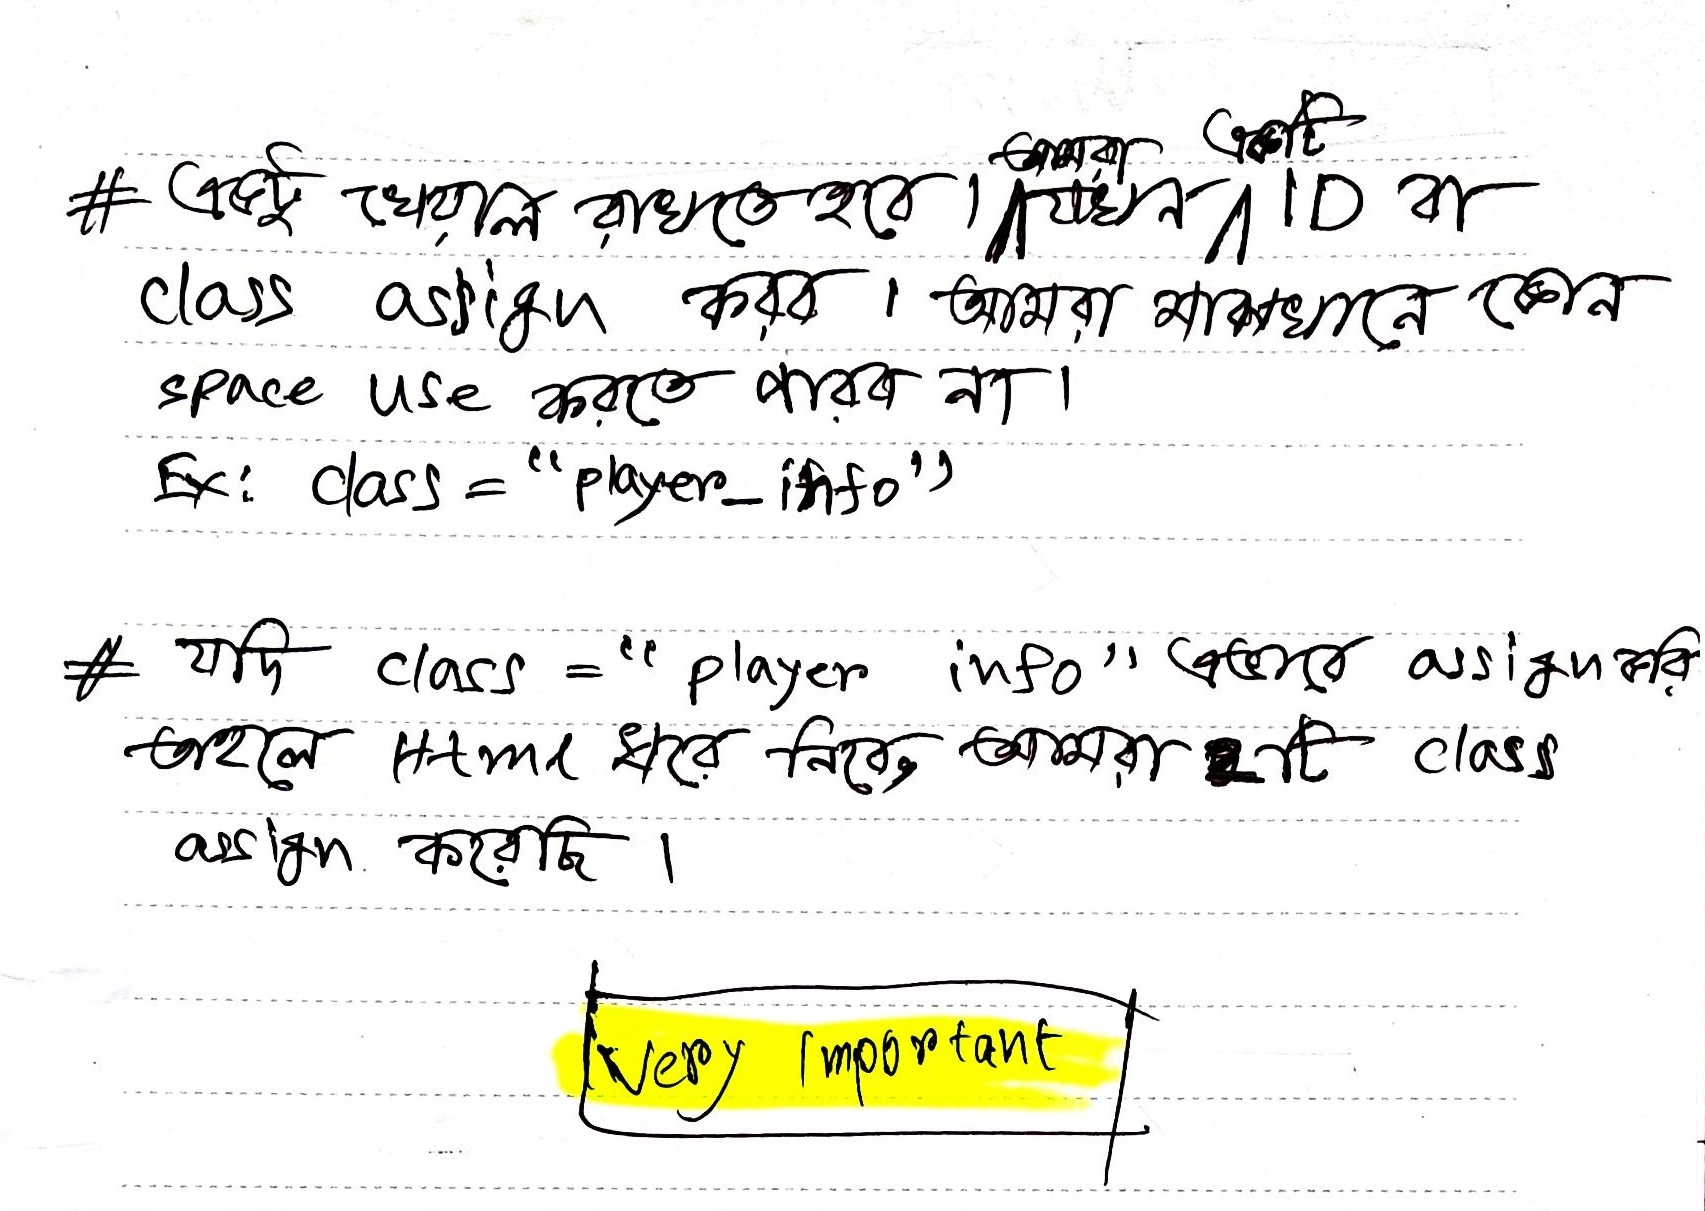 # একটু খেয়াল রাখতে হবে । আমরা যখন একটি ID বা
class assign করব । আমরা মাঝখানে কোন
space use করতে পারব না ।
Ex: class = "player_info"
# যদি class = "player info" এভাবে assign করি
তাহলে Html ধরে নিবে, আমরা 2টি class
assign করেছি ।
Very Important